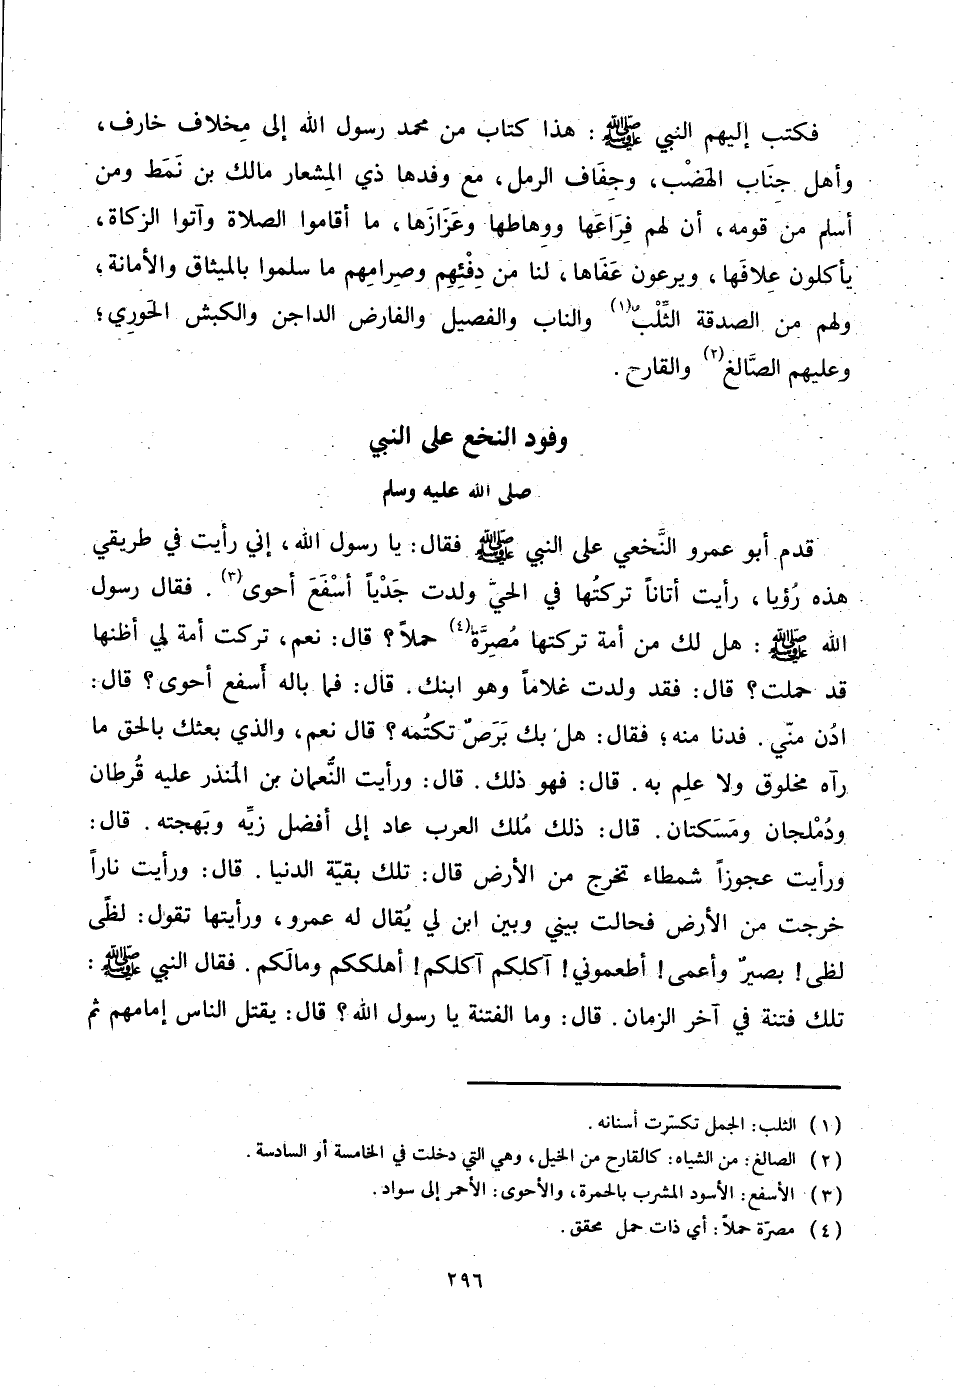 فكتب إليهم النبي ﷺ : هذا كتاب من محمد رسول الله إلى مِخلاف خارف،
وأهل جِنَاب الهَضْب، وحِفَاف الرمل، مع وفدها ذي المِشعار مالك بن نَمَط ومن
أسلم من قومه، أن لهم فِرَاعَها ووِهاطها وعَزَازَها، ما أقاموا الصلاة وآتوا الزكاة،
يأكلون عِلافَها، ويرعون عَفَاها، لنا من دِفْئِهِم وصِرامِهم ما سلموا بالميثاق والأمانة،
ولهم من الصدقة الثِّلْبُ(١) والناب والفصيل والفارض الداجن والكبش الحَوَرِي؛
وعليهم الصَّالغ(٢) والقارح.
وفود النخع على النبي
صلى الله عليه وسلم
قدم أبو عمرو النَّخعي على النبي ﷺ فقال: يا رسول الله، إني رأيت في طريقي
هذه رُؤيا، رأيت أتاناً تركتُها في الحيّ ولدت جَدْياً أسْفَعَ أحوى(٣). فقال رسول
الله ﷺ : هل لك من أمة تركتها مُصِرَّة(٤) حملاً؟ قال: نعم، تركت أمة لي أظنها
قد حملت؟ قال: فقد ولدت غلاماً وهو ابنك. قال: فما باله أَسفع أحوى؟ قال:
ادُن منّي. فدنا منه؛ فقال: هل بك بَرَصٌ تكتُمه؟ قال نعم، والذي بعثك بالحق ما
رآه مخلوق ولا علِم به. قال: فهو ذلك. قال: ورأيت النُّعمان بن المنذر عليه قُرطان
ودُمْلجان ومَسَكتان. قال: ذلك مُلك العرب عاد إلى أفضل زيِّه وبَهجته. قال:
ورأيت عجوزاً شمطاء تخرج من الأرض قال: تلك بقيّة الدنيا. قال: ورأيت ناراً
خرجت من الأرض فحالت بيني وبين ابن لي يُقال له عمرو، ورأيتها تقول: لظَى
لظى! بصيرٌ وأعمى! أطعموني! آكلكم آكلكم! أهلككم ومالَكم. فقال النبي ﷺ :
تلك فتنة في آخر الزمان. قال: وما الفتنة يا رسول الله؟ قال: يقتل الناس إمامهم ثم
(١) الثلب: الجمل تكسّرت أسنانه.
(٢) الصالغ: من الشياه: كالقارح من الخيل، وهي التي دخلت في الخامسة أو السادسة.
(٣) الأسفع: الأسود المشرب بالحمرة، والأحوى: الأحمر إلى سواد.
(٤) مصرّة حملاً: أي ذات حمل محقق.
٢٩٦